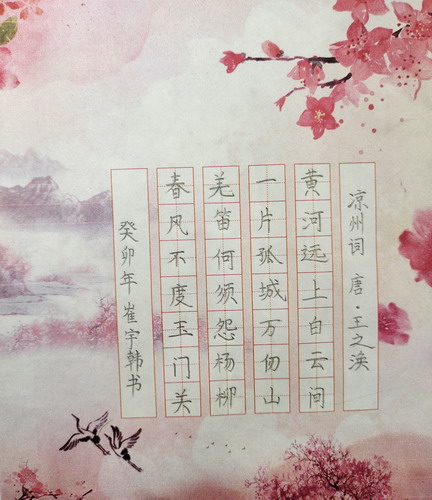 凉州词 唐·王之涣
黄河远上白云间
一片孤城万仞山
羌笛何须怨杨柳
春风不度玉门关
癸卯年 崔宇韩书